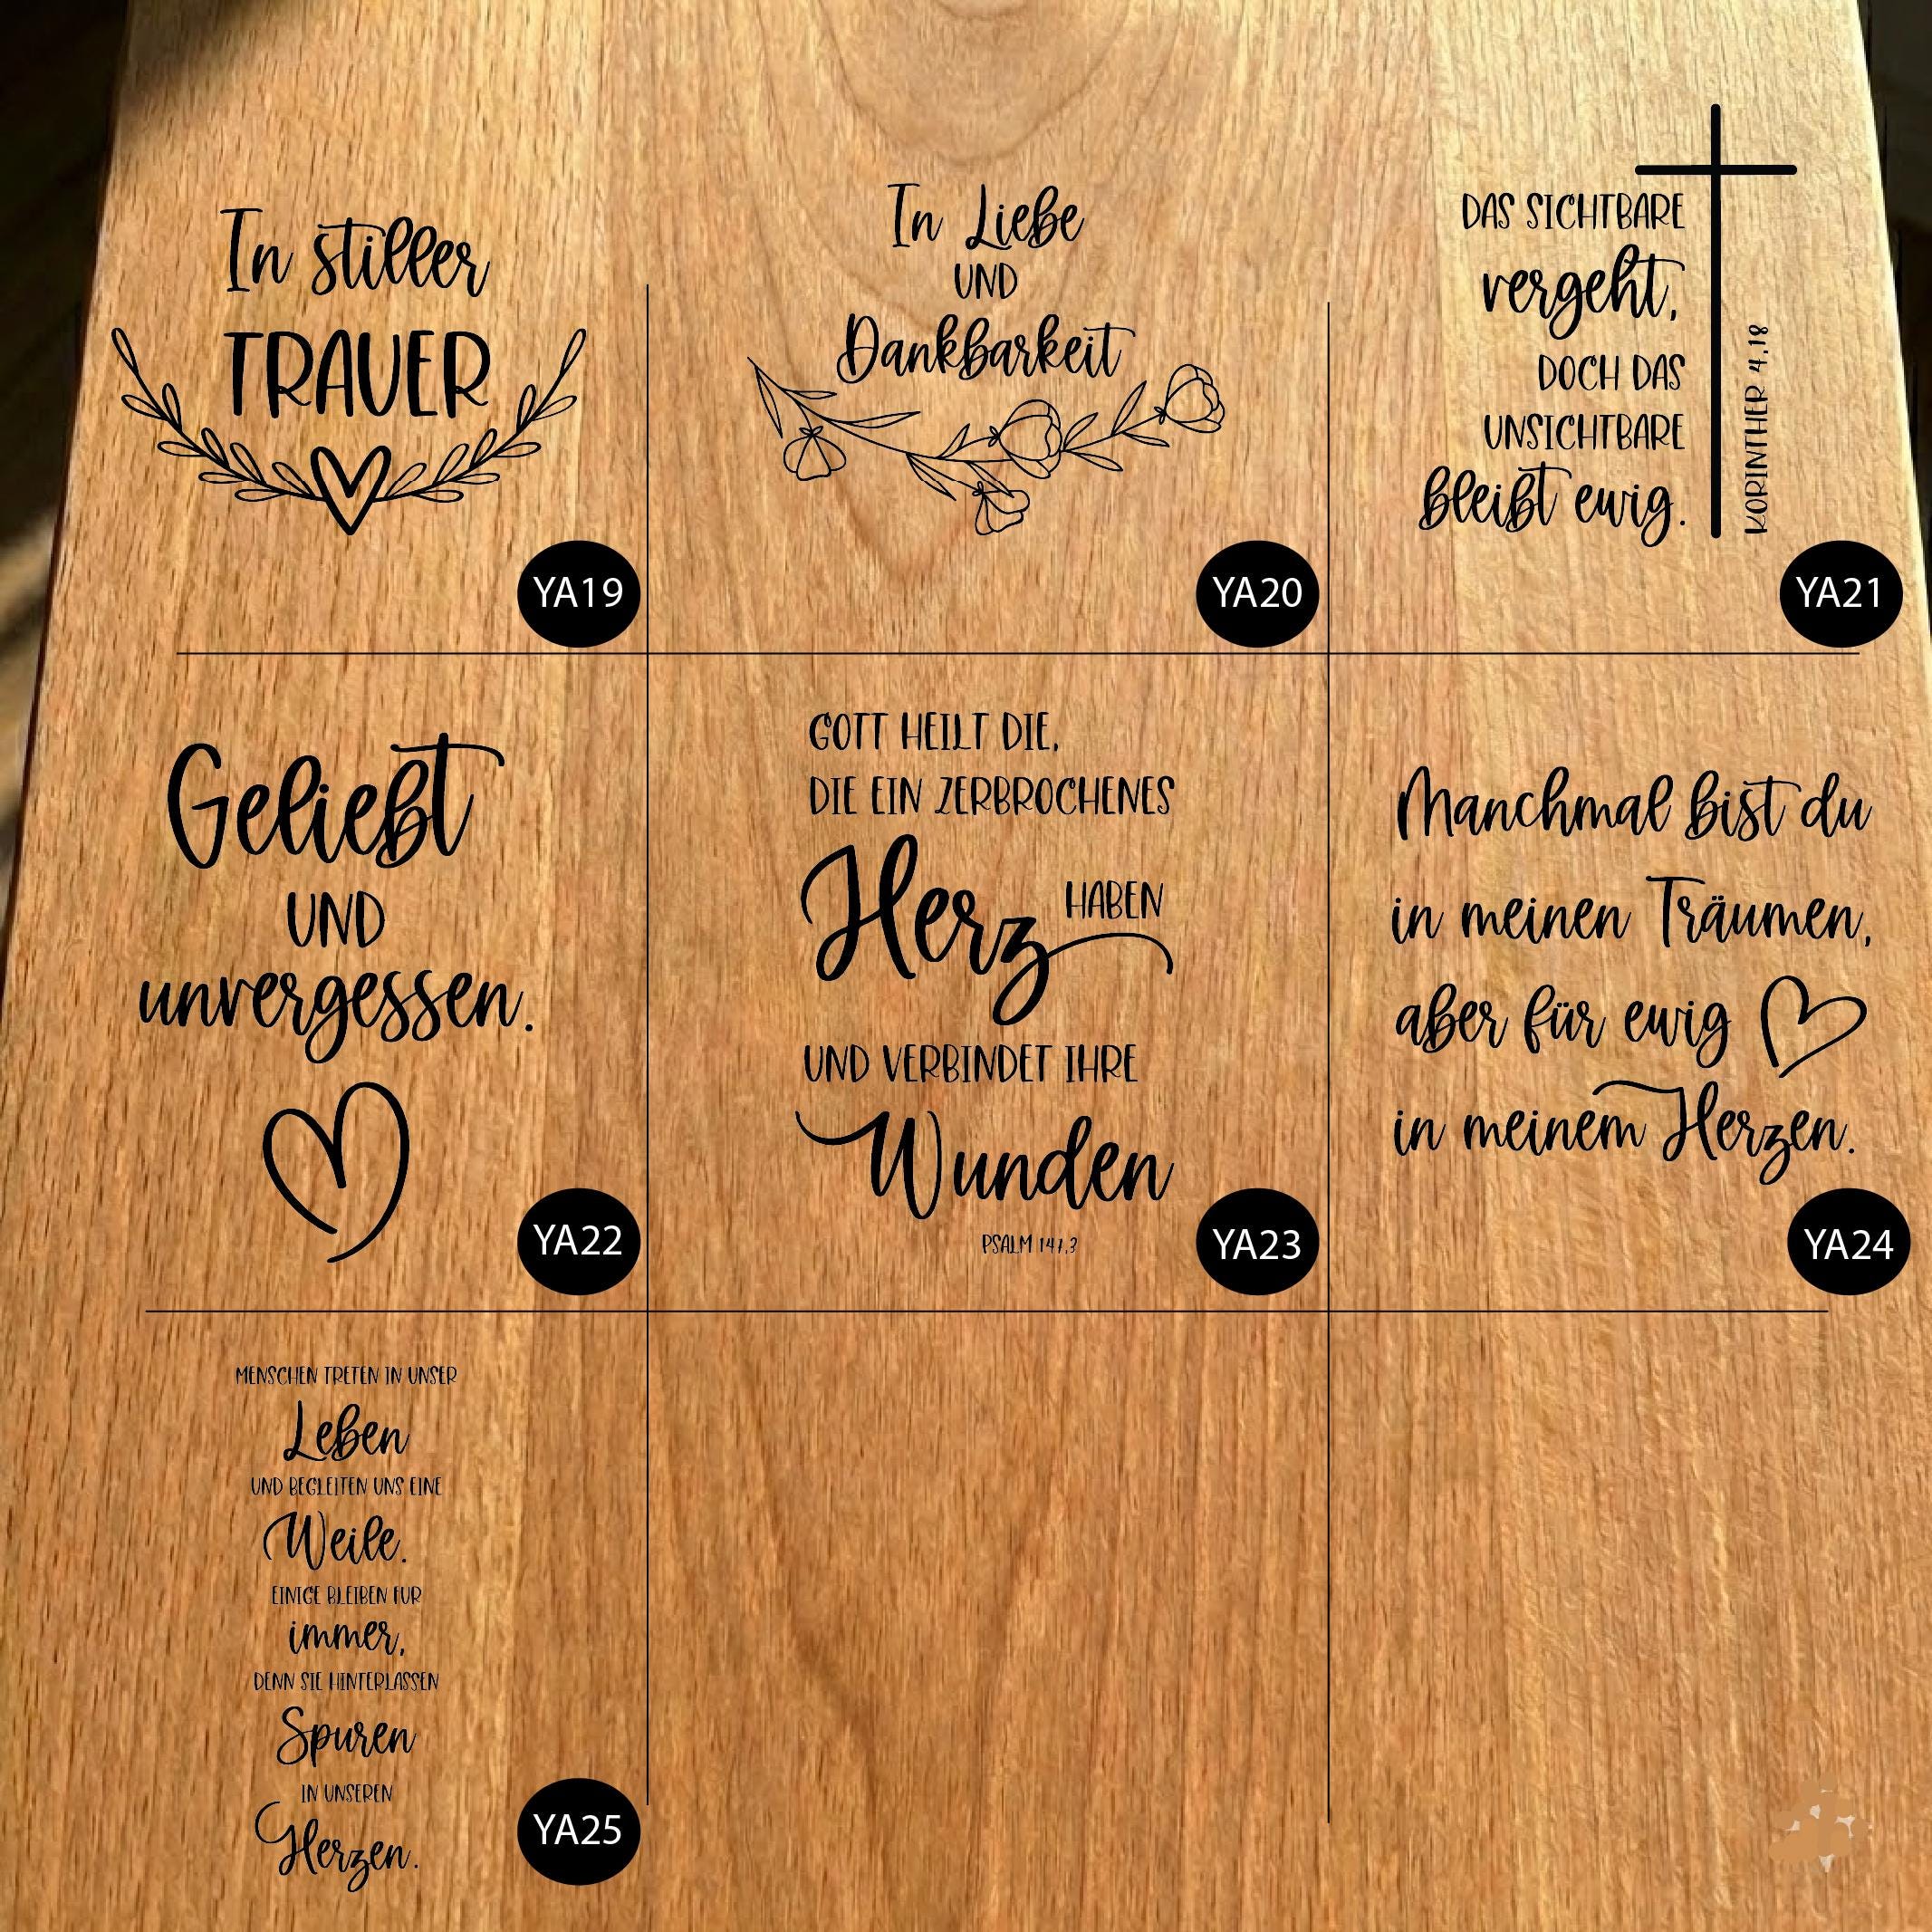 In stiller
TRAUER
YA19
In Liebe
UND
Dankbarkeit
YA20
DAS SICHTBARE
vergeht,
DOCH DAS
UNSICHTBARE
bleibt ewig.
KORINTHER 4,18
YA21
Geliebt
UND
unvergessen.
YA22
GOTT HEILT DIE,
DIE EIN ZERBROCHENES
Herz HABEN
UND VERBINDET IHRE
Wunden
PSALM 147,3
YA23
Manchmal bist du
in meinen Träumen,
aber für ewig
in meinem Herzen.
YA24
MENSCHEN TRETEN IN UNSER
Leben
UND BEGLEITEN UNS EINE
Weile.
EINIGE BLEIBEN FUR
immer,
DENN SIE HINTERLASSEN
Spuren
IN UNSEREN
Herzen.
YA25